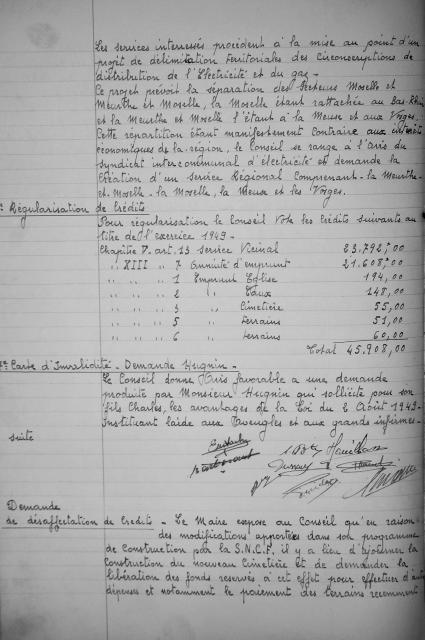 Les services interessés procèdent à la mise au point d'un
projet de délimitation territoriales des Circonscriptions de
distribution de l'Electricité et du gaz -
Ce projet prévoit la séparation des Secteurs Moselle et
Meurthe et Moselle, la Moselle étant rattachée au Bas-Rhin
et la Meurthe et Moselle l'étant à la Meuse et aux Vosges.
Cette répartition étant manifestement contraire aux intérêts
économiques de la région, le Conseil se range à l'avis du
Syndicat intercommunal d'électricité et demande la
Création d'un service Régional comprenant - la Meurthe-
et-Moselle - la Moselle, la Meuse et les Vosges.
Régularisation de Crédits
Pour régularisation le Conseil Vote les Crédits suivants au
titre de l'exercice 1949 -
Chapitre V. art. 13 Service Vicinal 23.792,00
" XIII " 7 Annuité d'emprunt 21.608,00
" " " 1 Emprunt Eglise 194,00
" " " 2 " Eaux 148,00
" " " 3 " Cimetière 55,00
" " " 5 " terrains 51,00
" " " 6 " terrains 60,00
Total 45.908,00
Carte d'Invalidité - Demande Hugnin -
Le Conseil donne Avis favorable a une demande
produite par Monsieur Hugnin qui sollicite pour son
fils Charles, les avantages de la Loi du 2 Août 1949
Instituant l'aide aux Aveugles et aux grands infirmes -
suite
Demande
de désaffectation de Crédits - Le Maire expose au Conseil qu'en raison
des modifications apportées dans son programme
de Construction par la S.N.C.F. il y a lieu d'ajourner la
Construction du nouveau Cimetière et de demander la
libération des fonds reservés à cet effet pour effectuer
dépenses et notamment le paiement des terrains recemment